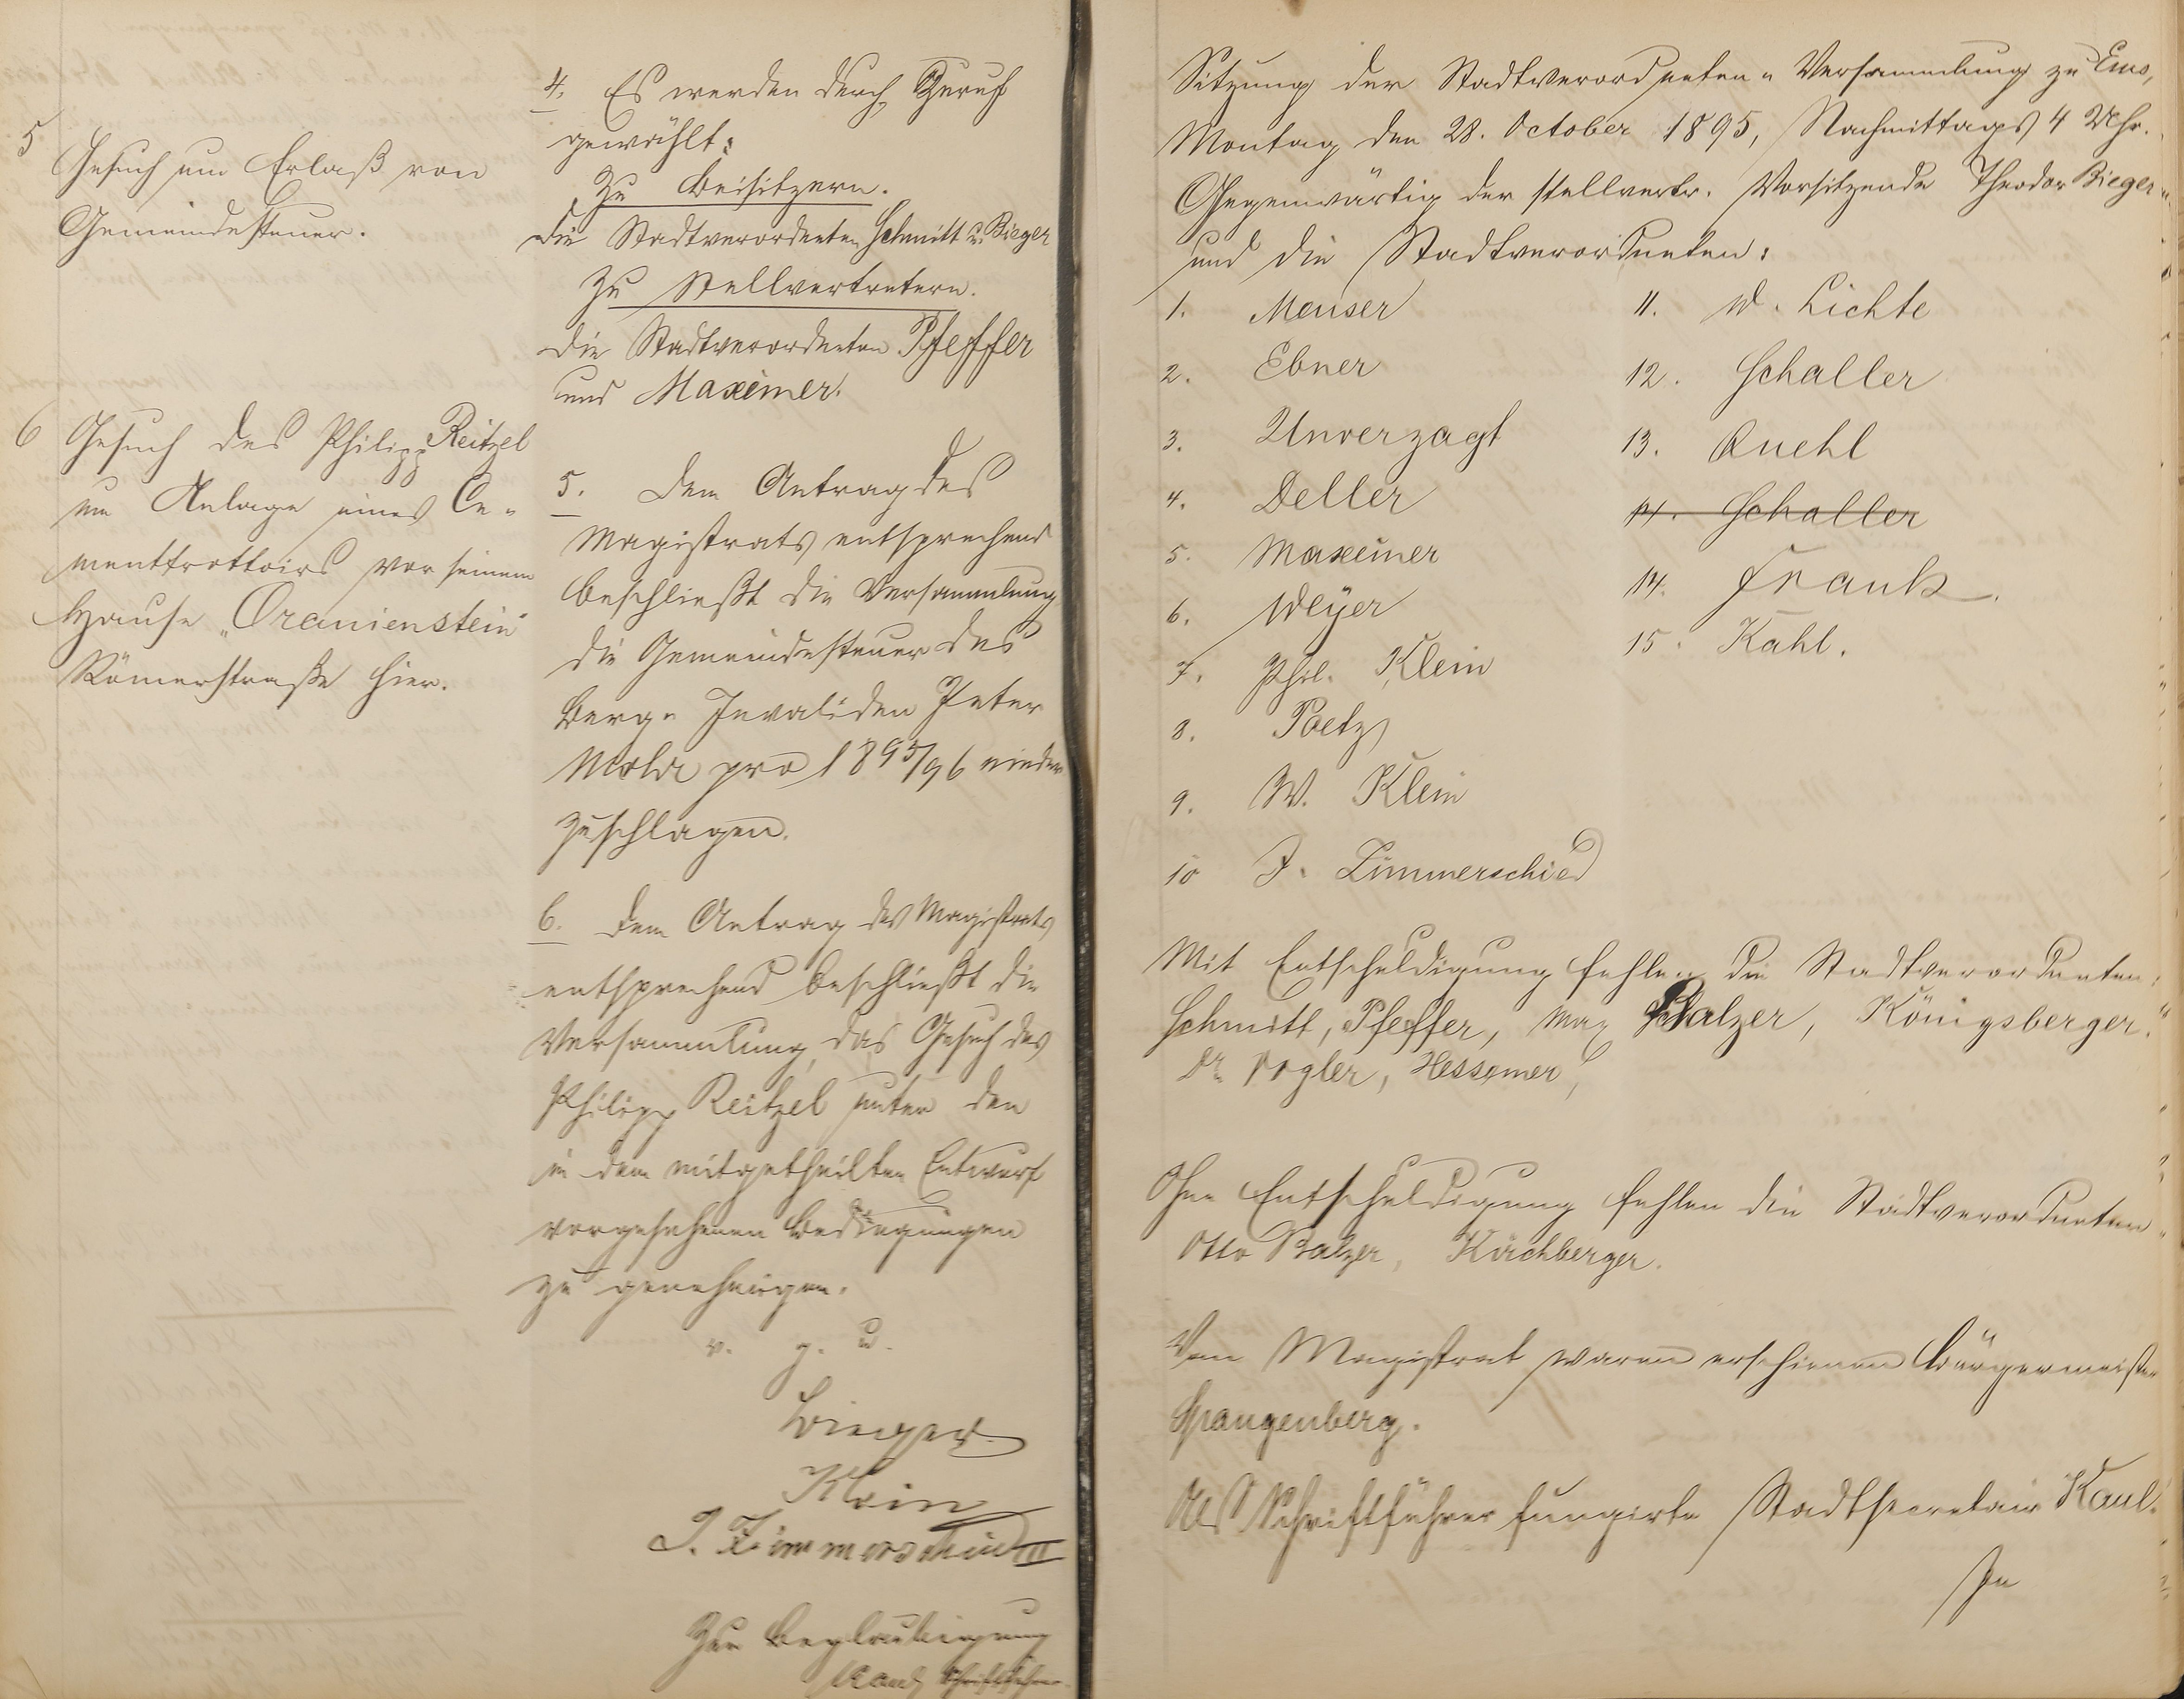 5
Gesuch um Erlaß von
Gemeindesteuer.
6 Gesuch des Philipp Reitzel
um Anlage eines Ce-
menttrottoirs vor seinem
Hause „Oranienstein"
Römerstraße hier.
4. Es werden durch Zuruf
gewählt:
Zu Beisitzern.
die Stadtverordneten Schmitt u. Bieger
Zu Stellvertretern.
die Stadtverordneten Pfeffer
und Maxeiner.
5. Dem Antrag des
Magistrats entsprechend
beschließt die Versammlung
die Gemeindesteuer des
Berg-Invaliden Peter
pro 1895/96 nieder
zuschlagen.
6. Dem Antrag des Magistrats
entsprechend beschließt die
Versammlung, das Gesuch des
Philipp Reitzel unter den
in dem mitgetheilten Entwurf
vorgesehenen Bedingungen
zu genehmigen.
v. g. u.
Bieger
Klein
J. Zimmerschied III
Zur Beglaubigung
Kaul, Schriftführer.
Sitzung der Stadtverordneten-Versammlung zu Ems,
Montag den 28. October 1895, Nachmittags 4 Uhr.
Gegenwärtig der stellvertr. Vorsitzende Theodor Bieger
und die Stadtverordneten:
1. Meuser
2. Ebner
3. Unverzagt
4. Deller
5. Maxeiner
6. Weyer
7. Phil. Klein
8. Poetz
9. W. Klein
10 J. Zimmerschied
11. W. Lichte
12. Schaller
13. Quehl
14. Schaller
14. Frank
15. Kahl.
Mit Entschuldigung fehlen die Stadtverordneten:
Schmitt, Pfeffer, Max Balzer, Königsberger.
Dr. Vogler, Hessemer,
Ohne Entschuldigung fehlen die Stadtverordneten
Otto Balzer, Kirchberger.
Vom Magistrat waren erschienen Bürgermeister
Spangenberg.
Als Schriftführer fungirte Stadtsecretair Kaul.
In